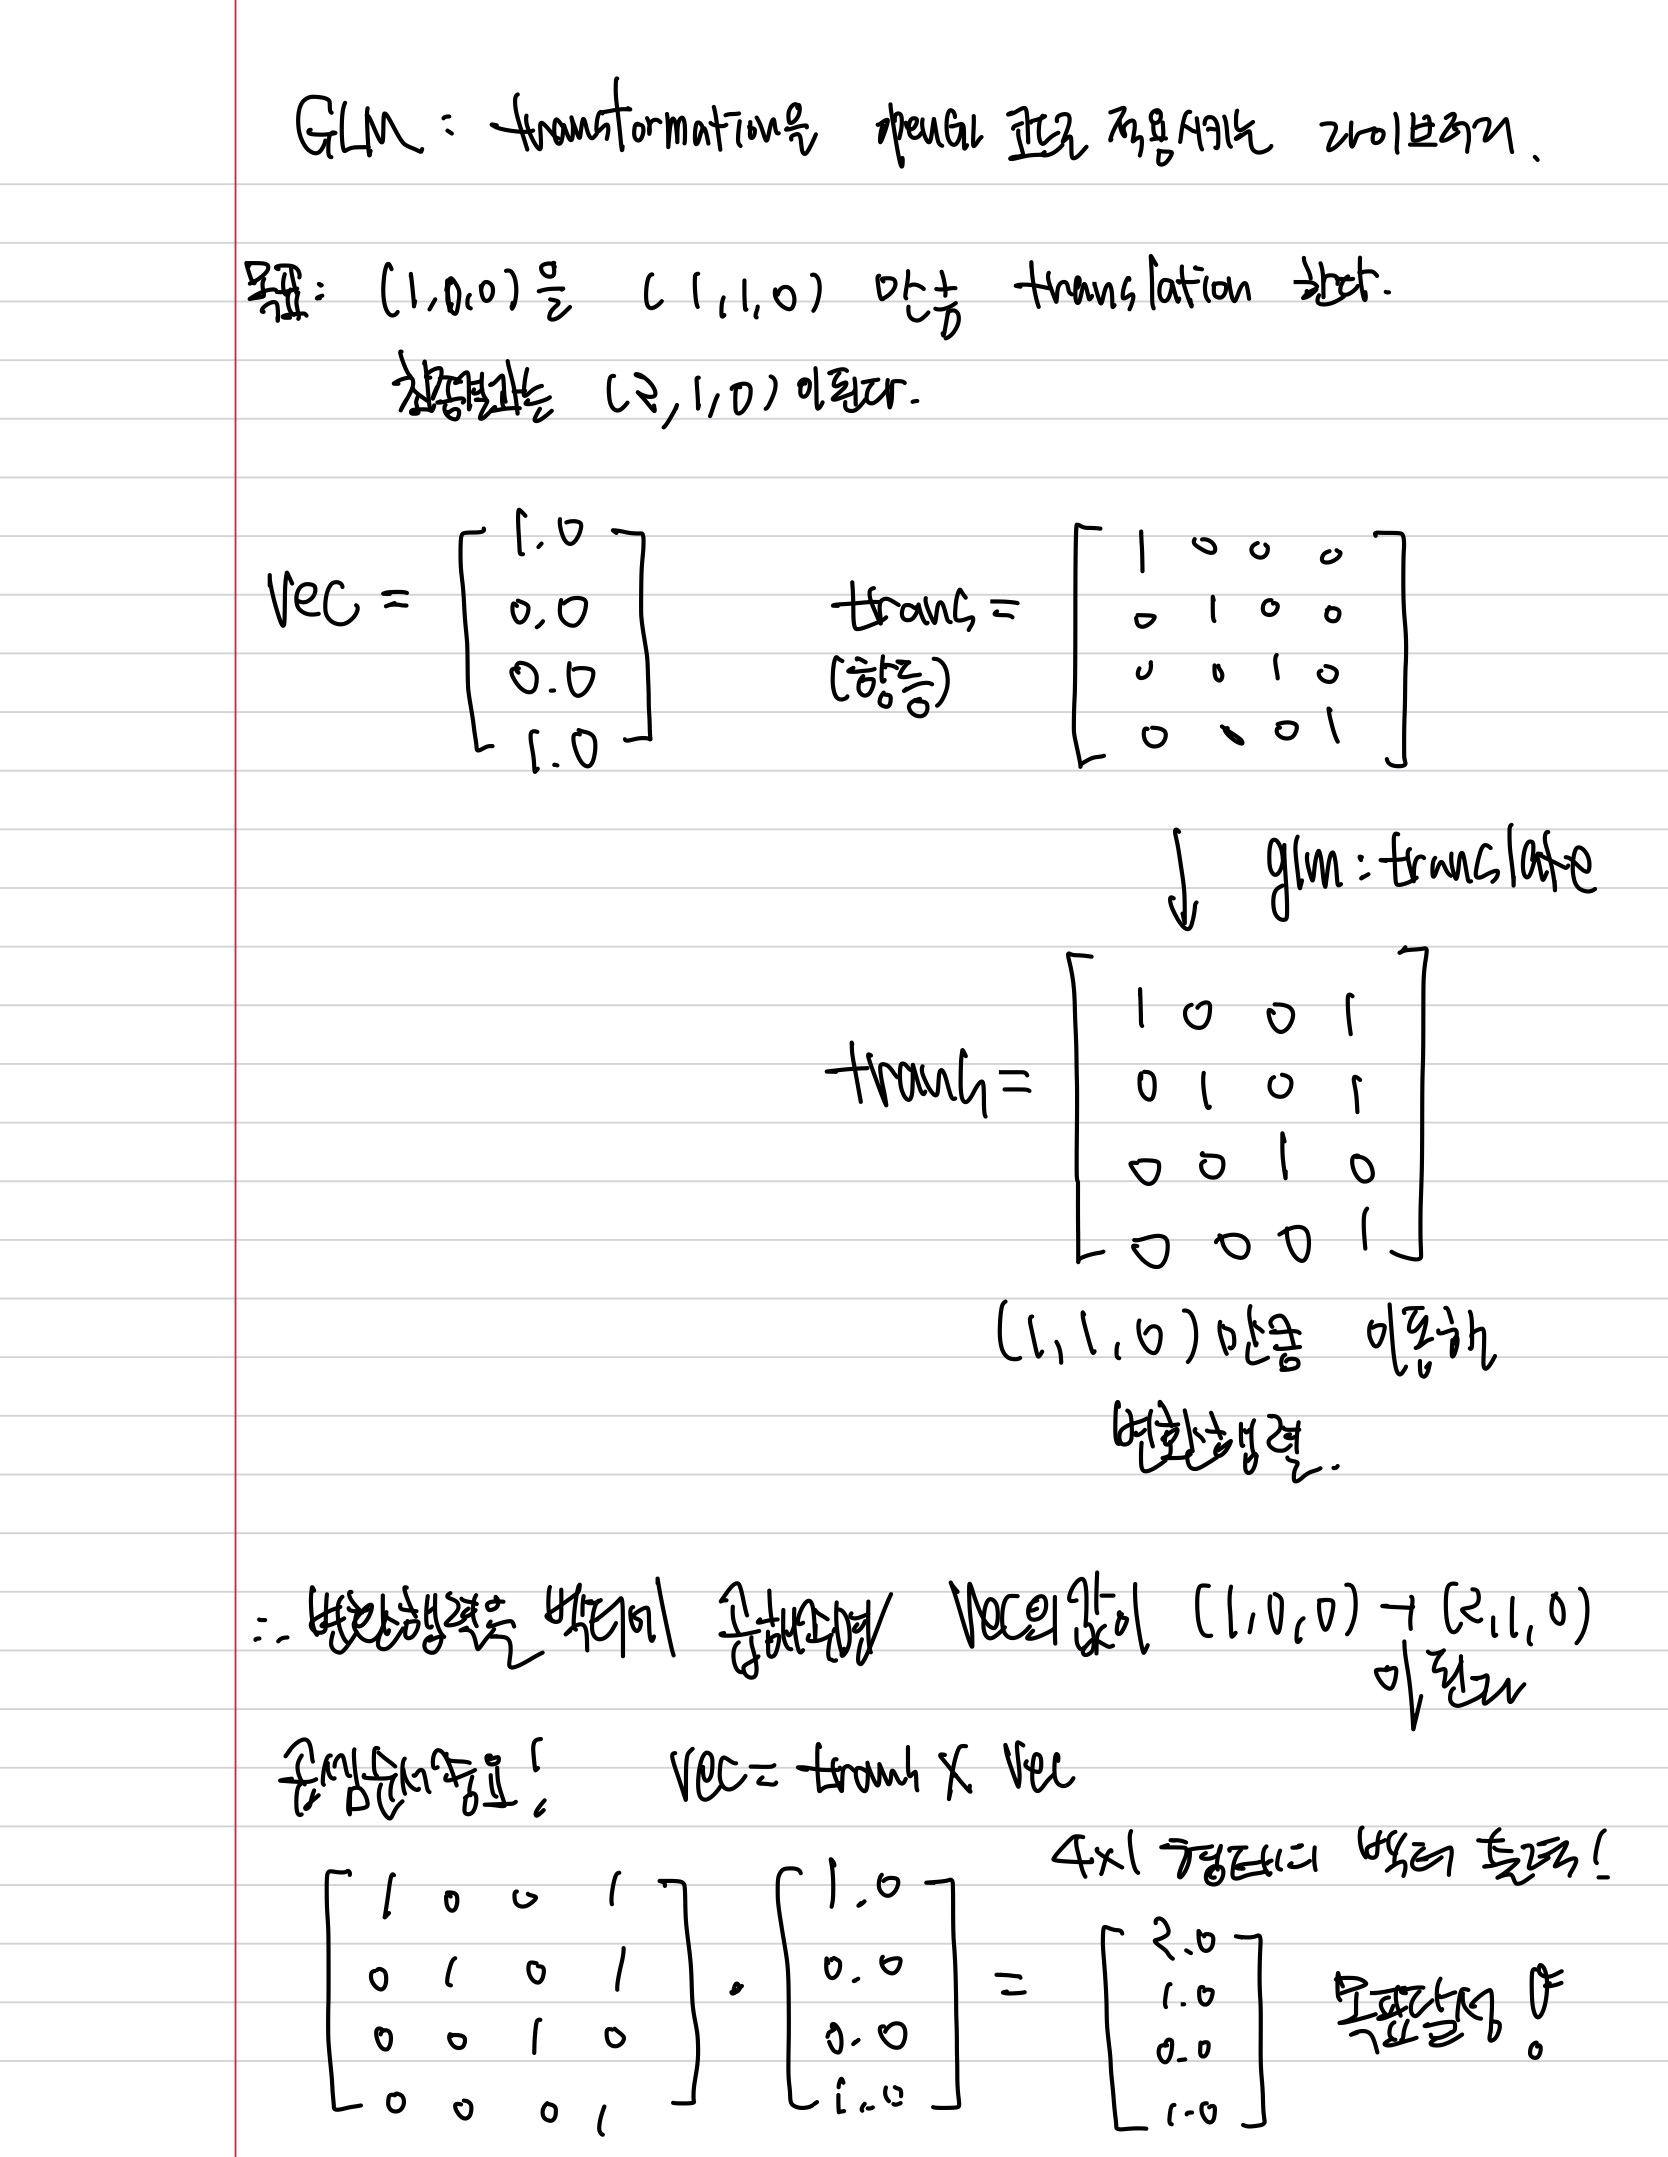 GLM : transformation을 openGL 코드로 적용시키는 라이브러리.
목표: (1,0,0)을 (1,1,0) 만큼 translation 한다.
최종결과는 (2,1,0)이 된다.
vec = [ 1.0
0.0
0.0
1.0 ]
trans = (항등)
[ 1 0 0 0
0 1 0 0
0 0 1 0
0 0 0 1 ]
↓ glm:translate
trans = [ 1 0 0 1
0 1 0 1
0 0 1 0
0 0 0 1 ]
(1,1,0)만큼 이동할
변환행렬.
∴ 변환행렬을 벡터에 곱해주면 Vec의 값이 (1,0,0) → (2,1,0)
이 된다
곱셈순서중요! vec = trans × vec
4x1 형태의 벡터 출력!
[ 1 0 0 1
0 1 0 1
0 0 1 0
0 0 0 1 ]
·
[ 1.0
0.0
0.0
1.0 ]
=
[ 2.0
1.0
0.0
1.0 ]
목표달성!